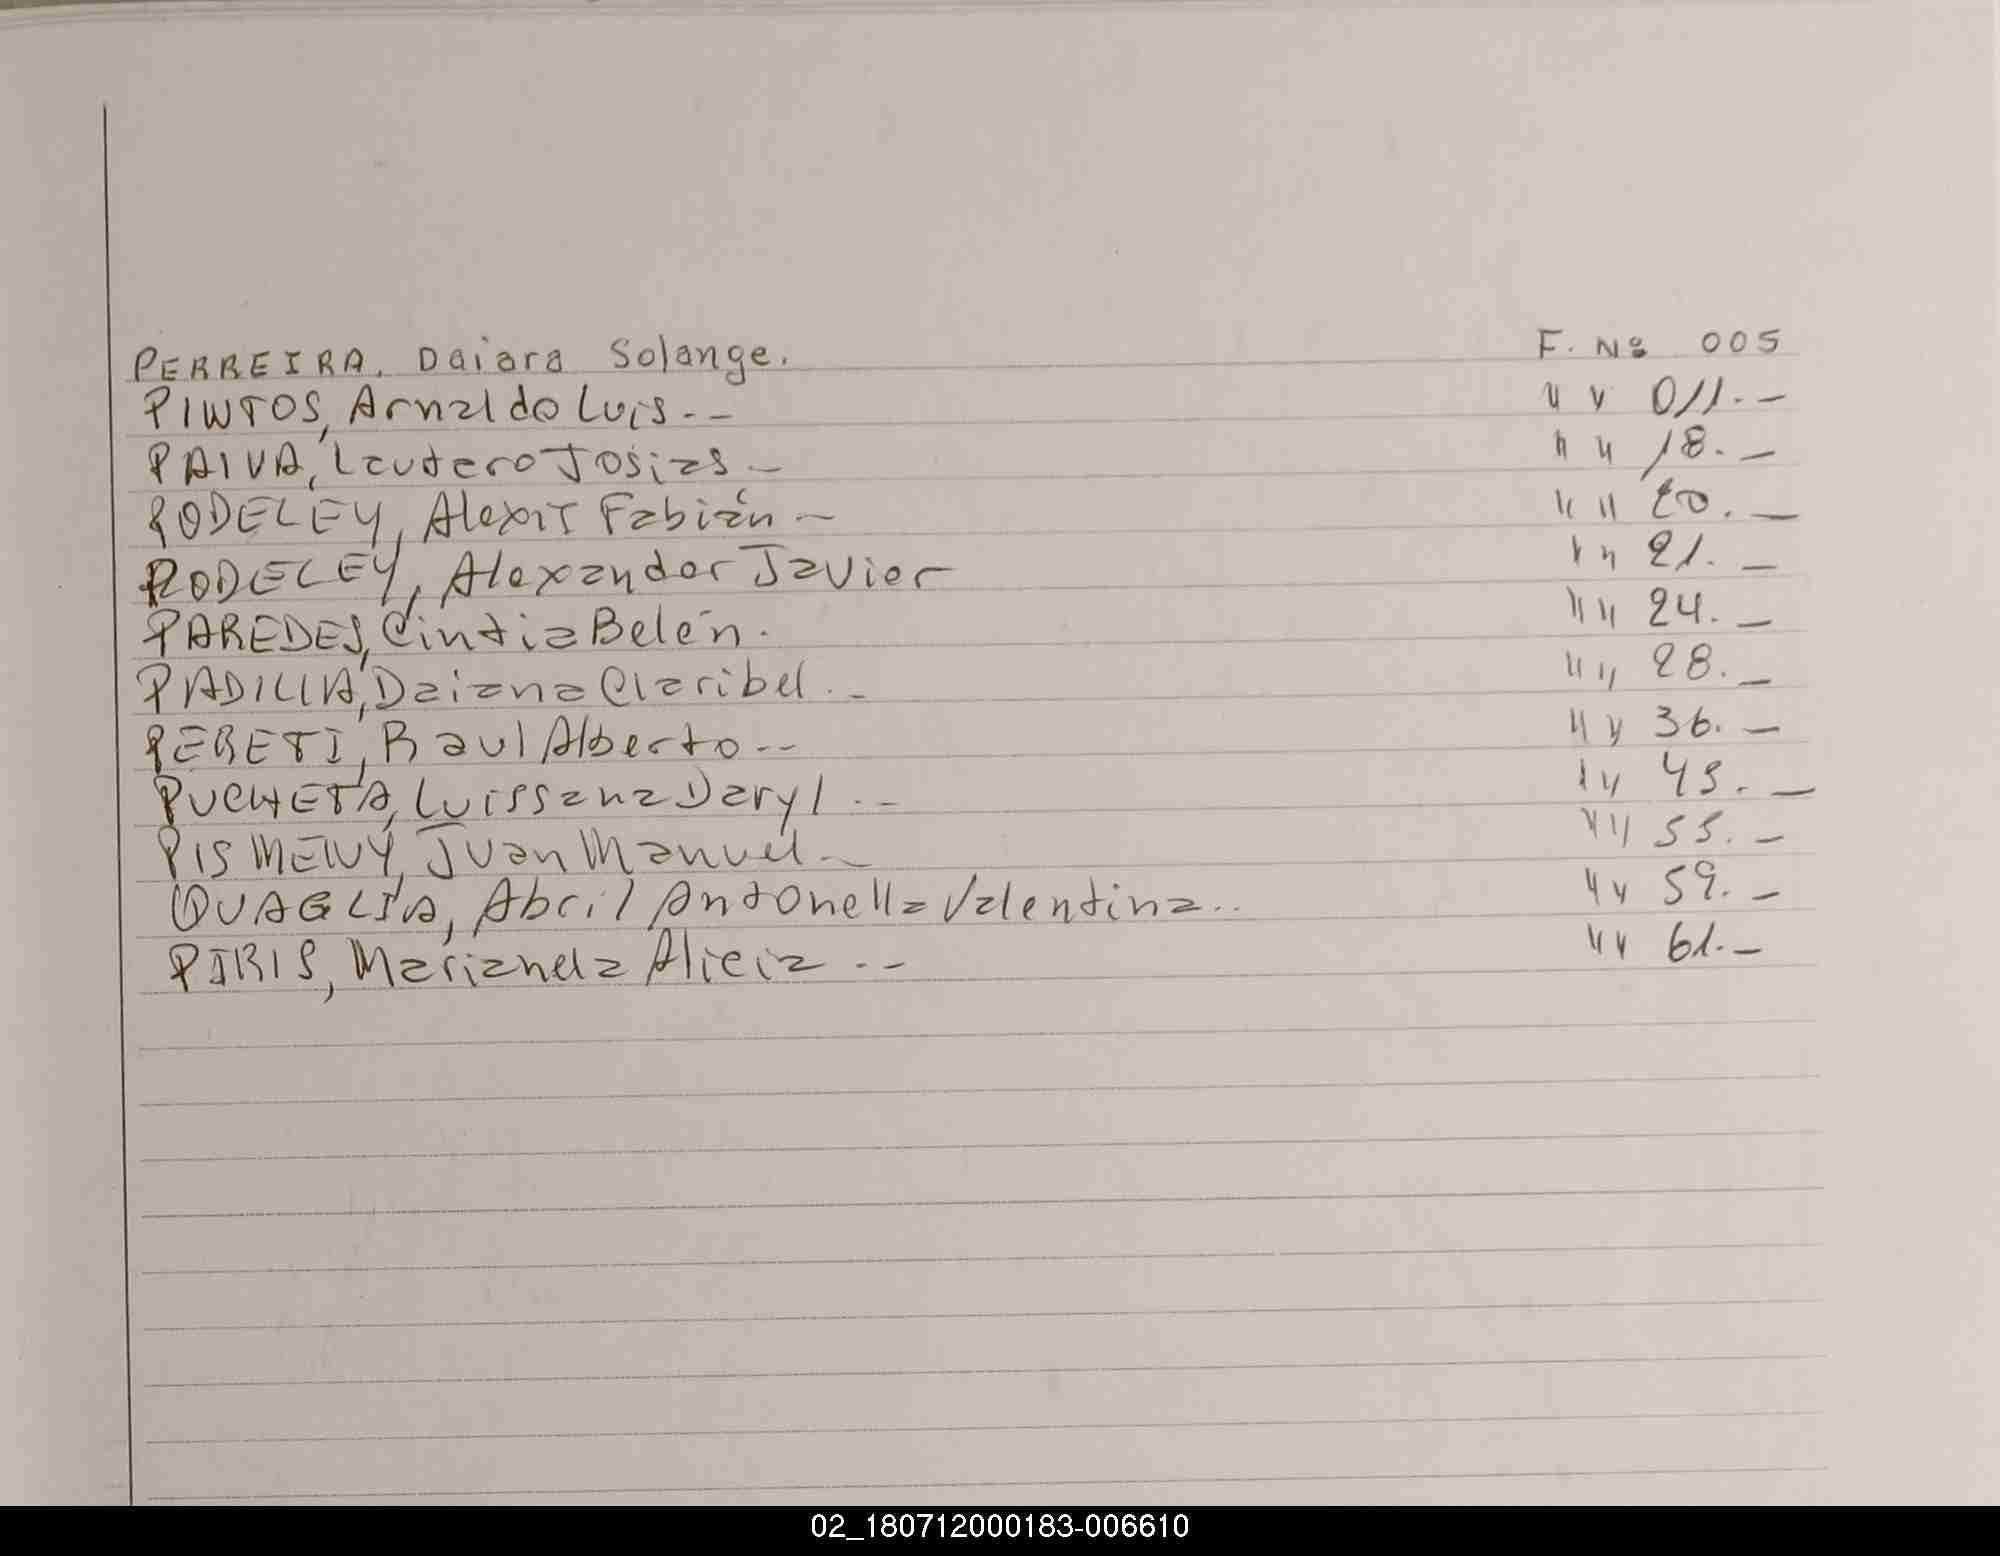 PERREIRA, Daiara Solange. F. Nº 005
PINTOS, Arnaldo Luis.-- " " 011.-
PAIVA, Lautero Josias - " " 18.-
RODELEY, Alexit Fabián - " " 20.-
RODELEY, Alexander Javier " " 21.-
PAREDES, Cintia Belén. " " 24.-
PADILLA, Daiana Claribel.- " " 28.-
PERETI, Raul Alberto-- " " 36.-
PUCHETA, Luissana Daryl.-- " " 43.-
PISMENNY, Juan Manuel.- " " 55.-
QUAGLIA, Abril Antonella Valentina.. " " 59.-
PIRIS, Marianela Alicia.-- " " 61.-
02_180712000183-006610